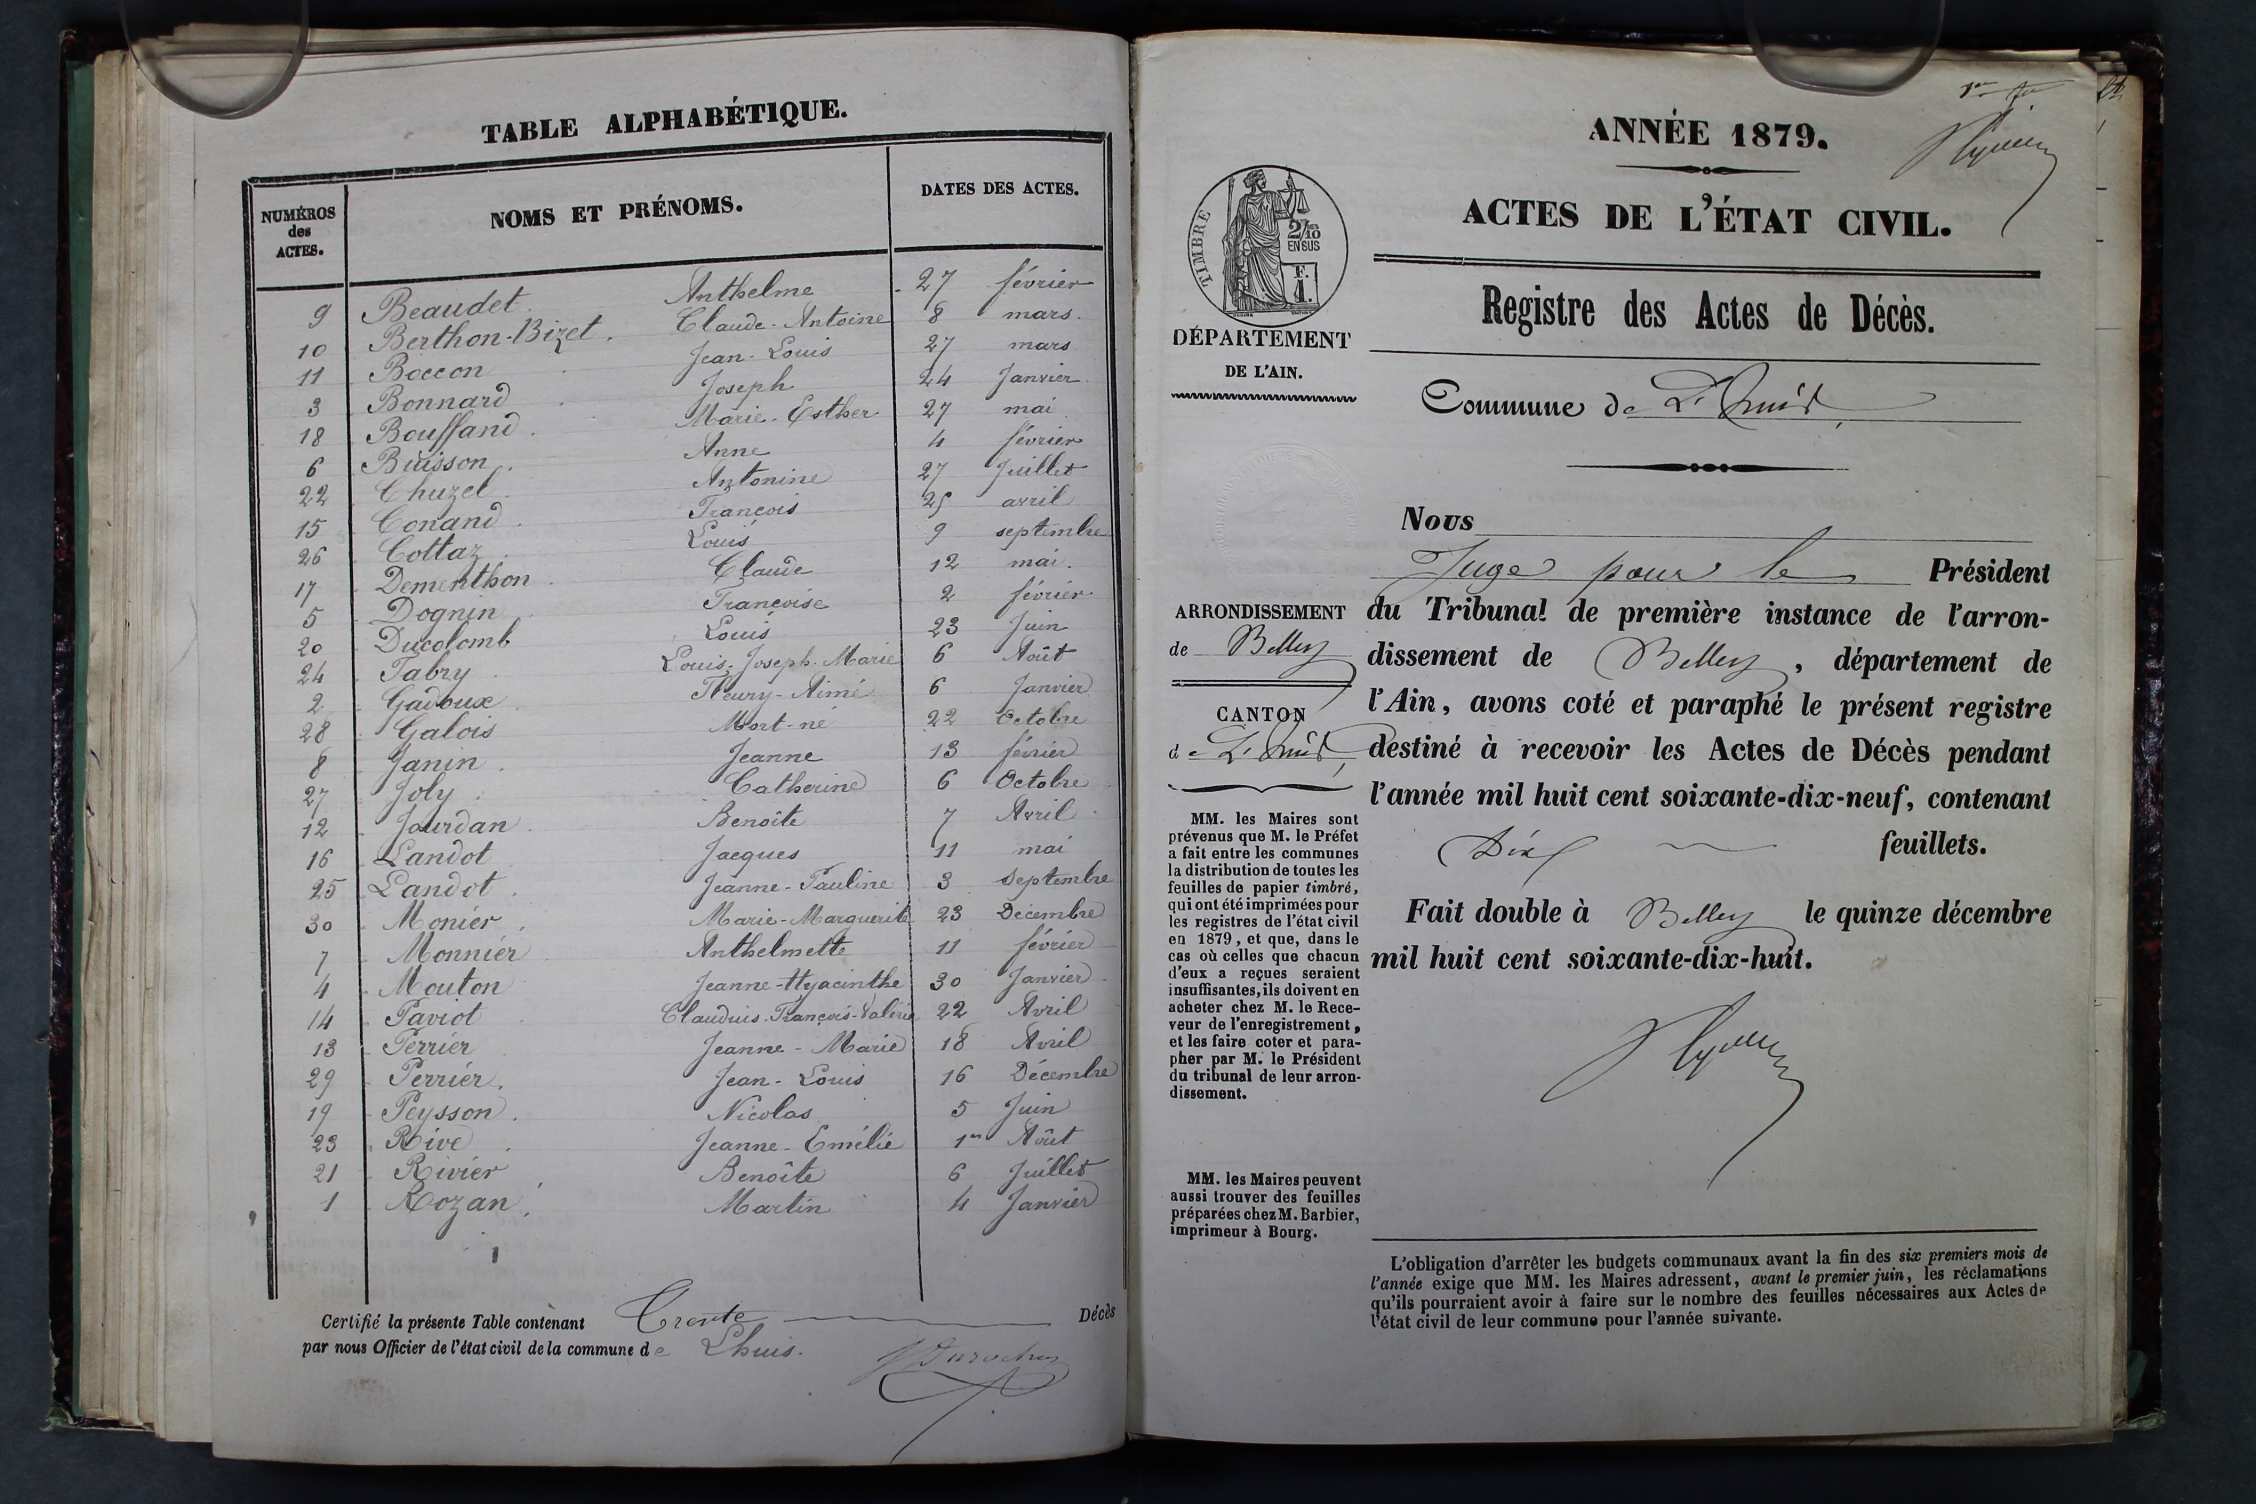 TABLE ALPHABÉTIQUE.
NUMÉROS des ACTES. NOMS ET PRÉNOMS. DATES DES ACTES.
9 Beaudet Anthelme 27 février
10 Berthon-Bizet Claude-Antoine 8 mars
11 Boccon Jean-Louis 27 mars
3 Bonnard Joseph 24 Janvier
18 Bouffand Marie-Esther 27 mai
6 Buisson Anne 4 février
22 Chuzel Antonine 27 Juillet
15 Conand François 25 avril
26 Cottaz Louis 9 septembre
17 Dementhon Claude 12 mai
5 Dognin Françoise 2 février
20 Ducolomb Louis 23 Juin
24 Fabry Louis-Joseph-Marie 6 Août
2 Gadoux Fleury-Aimé 6 Janvier
28 Galois Mort-né 22 Octobre
8 Janin Jeanne 13 février
27 Joly Catherine 6 Octobre
12 Jourdan Benoîte 7 Avril
16 Landot Jacques 11 mai
25 Landot Jeanne-Pauline 3 Septembre
30 Monier Marie-Marguerite 23 Décembre
7 Monnier Anthelmette 11 février
4 Mouton Jeanne-Hyacinthe 30 Janvier
14 Paviot Claudius-François-Valérie 22 Avril
13 Perrier Jeanne-Marie 18 Avril
29 Perrier Jean-Louis 16 Décembre
19 Peysson Nicolas 5 Juin
23 Rive Jeanne-Emélie 1er Août
21 Rivier Benoîte 6 Juillet
1 Rozan Martin 4 Janvier
Certifié la présente Table contenant Trente Décès
par nous Officier de l'état civil de la commune de Lhuis.
ANNÉE 1879.
ACTES DE L'ÉTAT CIVIL.
TIMBRE
2/10 EN SUS
F. 1.
DÉPARTEMENT
DE L'AIN.
Registre des Actes de Décès.
Commune de L'huis
Nous
Juge pour le Président
du Tribunal de première instance de l'arron-
dissement de Belley, département de
l'Ain, avons coté et paraphé le présent registre
destiné à recevoir les Actes de Décès pendant
l'année mil huit cent soixante-dix-neuf, contenant
Dix feuillets.
Fait double à Belley le quinze décembre
mil huit cent soixante-dix-huit.
ARRONDISSEMENT
de Belley
CANTON
de L'huis
MM. les Maires sont
prévenus que M. le Préfet
a fait entre les communes
la distribution de toutes les
feuilles de papier timbré,
qui ont été imprimées pour
les registres de l'état civil
en 1879, et que, dans le
cas où celles que chacun
d'eux a reçues seraient
insuffisantes, ils doivent en
acheter chez M. le Rece-
veur de l'enregistrement,
et les faire coter et para-
pher par M. le Président
du tribunal de leur arron-
dissement.
MM. les Maires peuvent
aussi trouver des feuilles
préparées chez M. Barbier,
imprimeur à Bourg.
L'obligation d'arrêter les budgets communaux avant la fin des six premiers mois de
l'année exige que MM. les Maires adressent, avant le premier juin, les réclamations
qu'ils pourraient avoir à faire sur le nombre des feuilles nécessaires aux Actes de
l'état civil de leur commune pour l'année suivante.